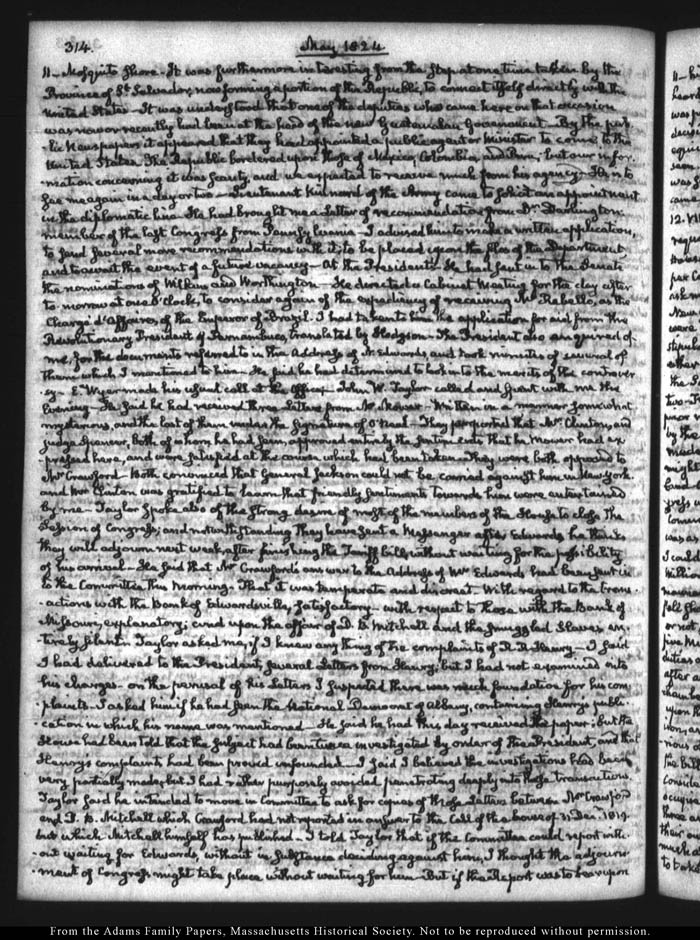 314.
May 1824
11– Mosquito Shore. It was furthermore interesting from the step at one time taken by the
Province of St. Salvador, now forming a portion of the Republic, to connect itself directly with the
United States – It was understood that one of the deputies who came here on that occasion
was now or recently had been at the head of the new Guatemalan Government – By the pub-
-lic Newspapers it appeared that they had appointed a public agent or Minister to come to the
United States. The Republic bordered upon those of Mexico, Colombia and Peru; but our infor-
-mation concerning it was scanty, and we expected to receive much from his agency – He is to
see me again in a day or two – Lieutenant of the Army came to solicit an appointment
in the diplomatic line. He had brought me a letter of recommendation from Dr. Darlington
member of the last Congress from Pennsylvania – I advised him to make a written application,
to send several more recommendations with it; to be placed upon the files of the Department,
and to await the event of a future vacancy – At the President's. He had sent in to the Senate
the nominations of Wilkins and Worthington – He directed a Cabinet Meeting for the day after
to-morrow at one O'Clock, to consider again of the expediency of receiving Mr. Rebello, as the
Chargé d'Affaires, of the Emperor of Brazil. I had taken to him the application for aid from the
Revolutionary President of Pernambuco, translated by Hodgson. The President also enquired of
me, for the documents referred to in the Address of N. Edwards, and took minutes of several of
them which I mentioned to him – He said he had determined to look into the merits of the controver-
-sy – E. Wyer made his usual call at the Office – John W. Taylor called and spent with me the
Evening – He said he had received three Letters from Mr. Mower – Written in a manner somewhat
mysterious, and the last of them under the signature of O'Neal – They purported that Mr. Clinton, and
Judge Spencer, both of whom he had seen, approved entirely the sentiments that he Mower had ex-
-pressed here, and were satisfied at the course which had been taken – They were both opposed to
Mr. Crawford – Both convinced that General Jackson could not be carried against him in New York.
and Mr. Clinton was gratified to learn that friendly sentiments towards him were entertained
by me – Taylor spoke also of the strong desire of most of the members of the House to close the
Session of Congress; and notwithstanding they have sent a Messenger after Edwards, he thinks
they will adjourn next week after finishing the Tariff bill, without waiting for the possibility
of his arrival – He said that Mr. Crawford's answer to the Address of Mr. Edwards had been sent in
to the Committee this Morning. That it was temperate and discreet. With regard to the trans-
-actions with the Bank of Edwardsville, satisfactory – with respect to those with the Bank of
Missouri, explanatory; and upon the affair of D. B. Mitchell and the smuggled slaves en-
-tirely silent. Taylor asked me, if I knew any thing of the complaints of R. R. Henry – I said
I had delivered to the President, several Letters from Henry; but I had not examined into
his charges – on the perusal of his Letters I suspected there was much foundation for his com-
-plaints – I asked him if he had seen the National Democrat of Albany, containing Henry's publi-
-cation in which his name was mentioned – He said he had this day received the paper; but the
House had been told that the subject had been twice investigated by order of the President, and that
Henry's complaints had been proved unfounded – I said I believed the investigations had been
very partially made, but I had rather purposely avoided penetrating deeply into those transactions.
Taylor said he intended to move in Committee to ask for copies of those Letters between Mr. Crawford
and D. B. Mitchell which Crawford had not reported in answer to the Call of the house of 31 Dec. 1819.
but which Mitchell himself has published. I told Taylor that if the Committee could report with-
-out waiting for Edwards, without in substance deciding against him, I thought the adjourn-
-ment of Congress might take place without waiting for him – But if the Report was to bear upon
From the Adams Family Papers, Massachusetts Historical Society. Not to be reproduced without permission.